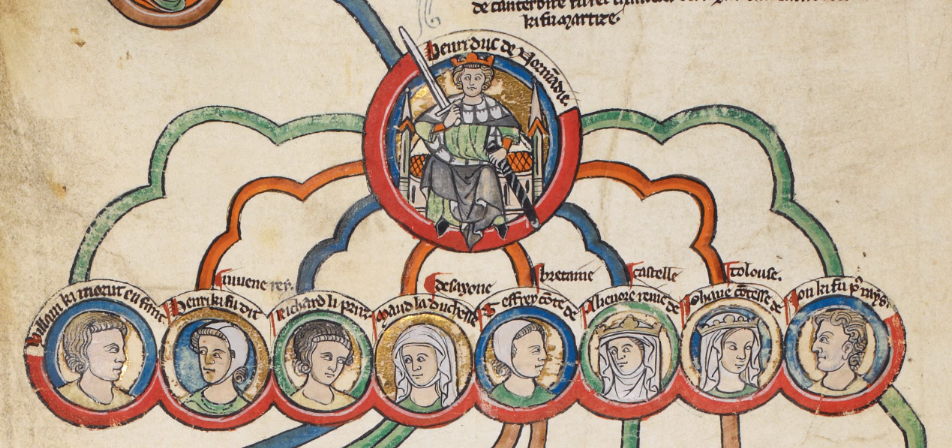 de cantorbire fu
ki fu martize.
henri duc de Norma&#x0303;die.
iuuene rey.
de sayone
bretaine
castelle
tolouse.
Willam ki morut enfaunt
henri ki fu dit
Richard li prin
Maud la duchesse
Geffrey cōte de
Alienore reine de
Johane cōtesse de
Jon ki fu p̄ rays